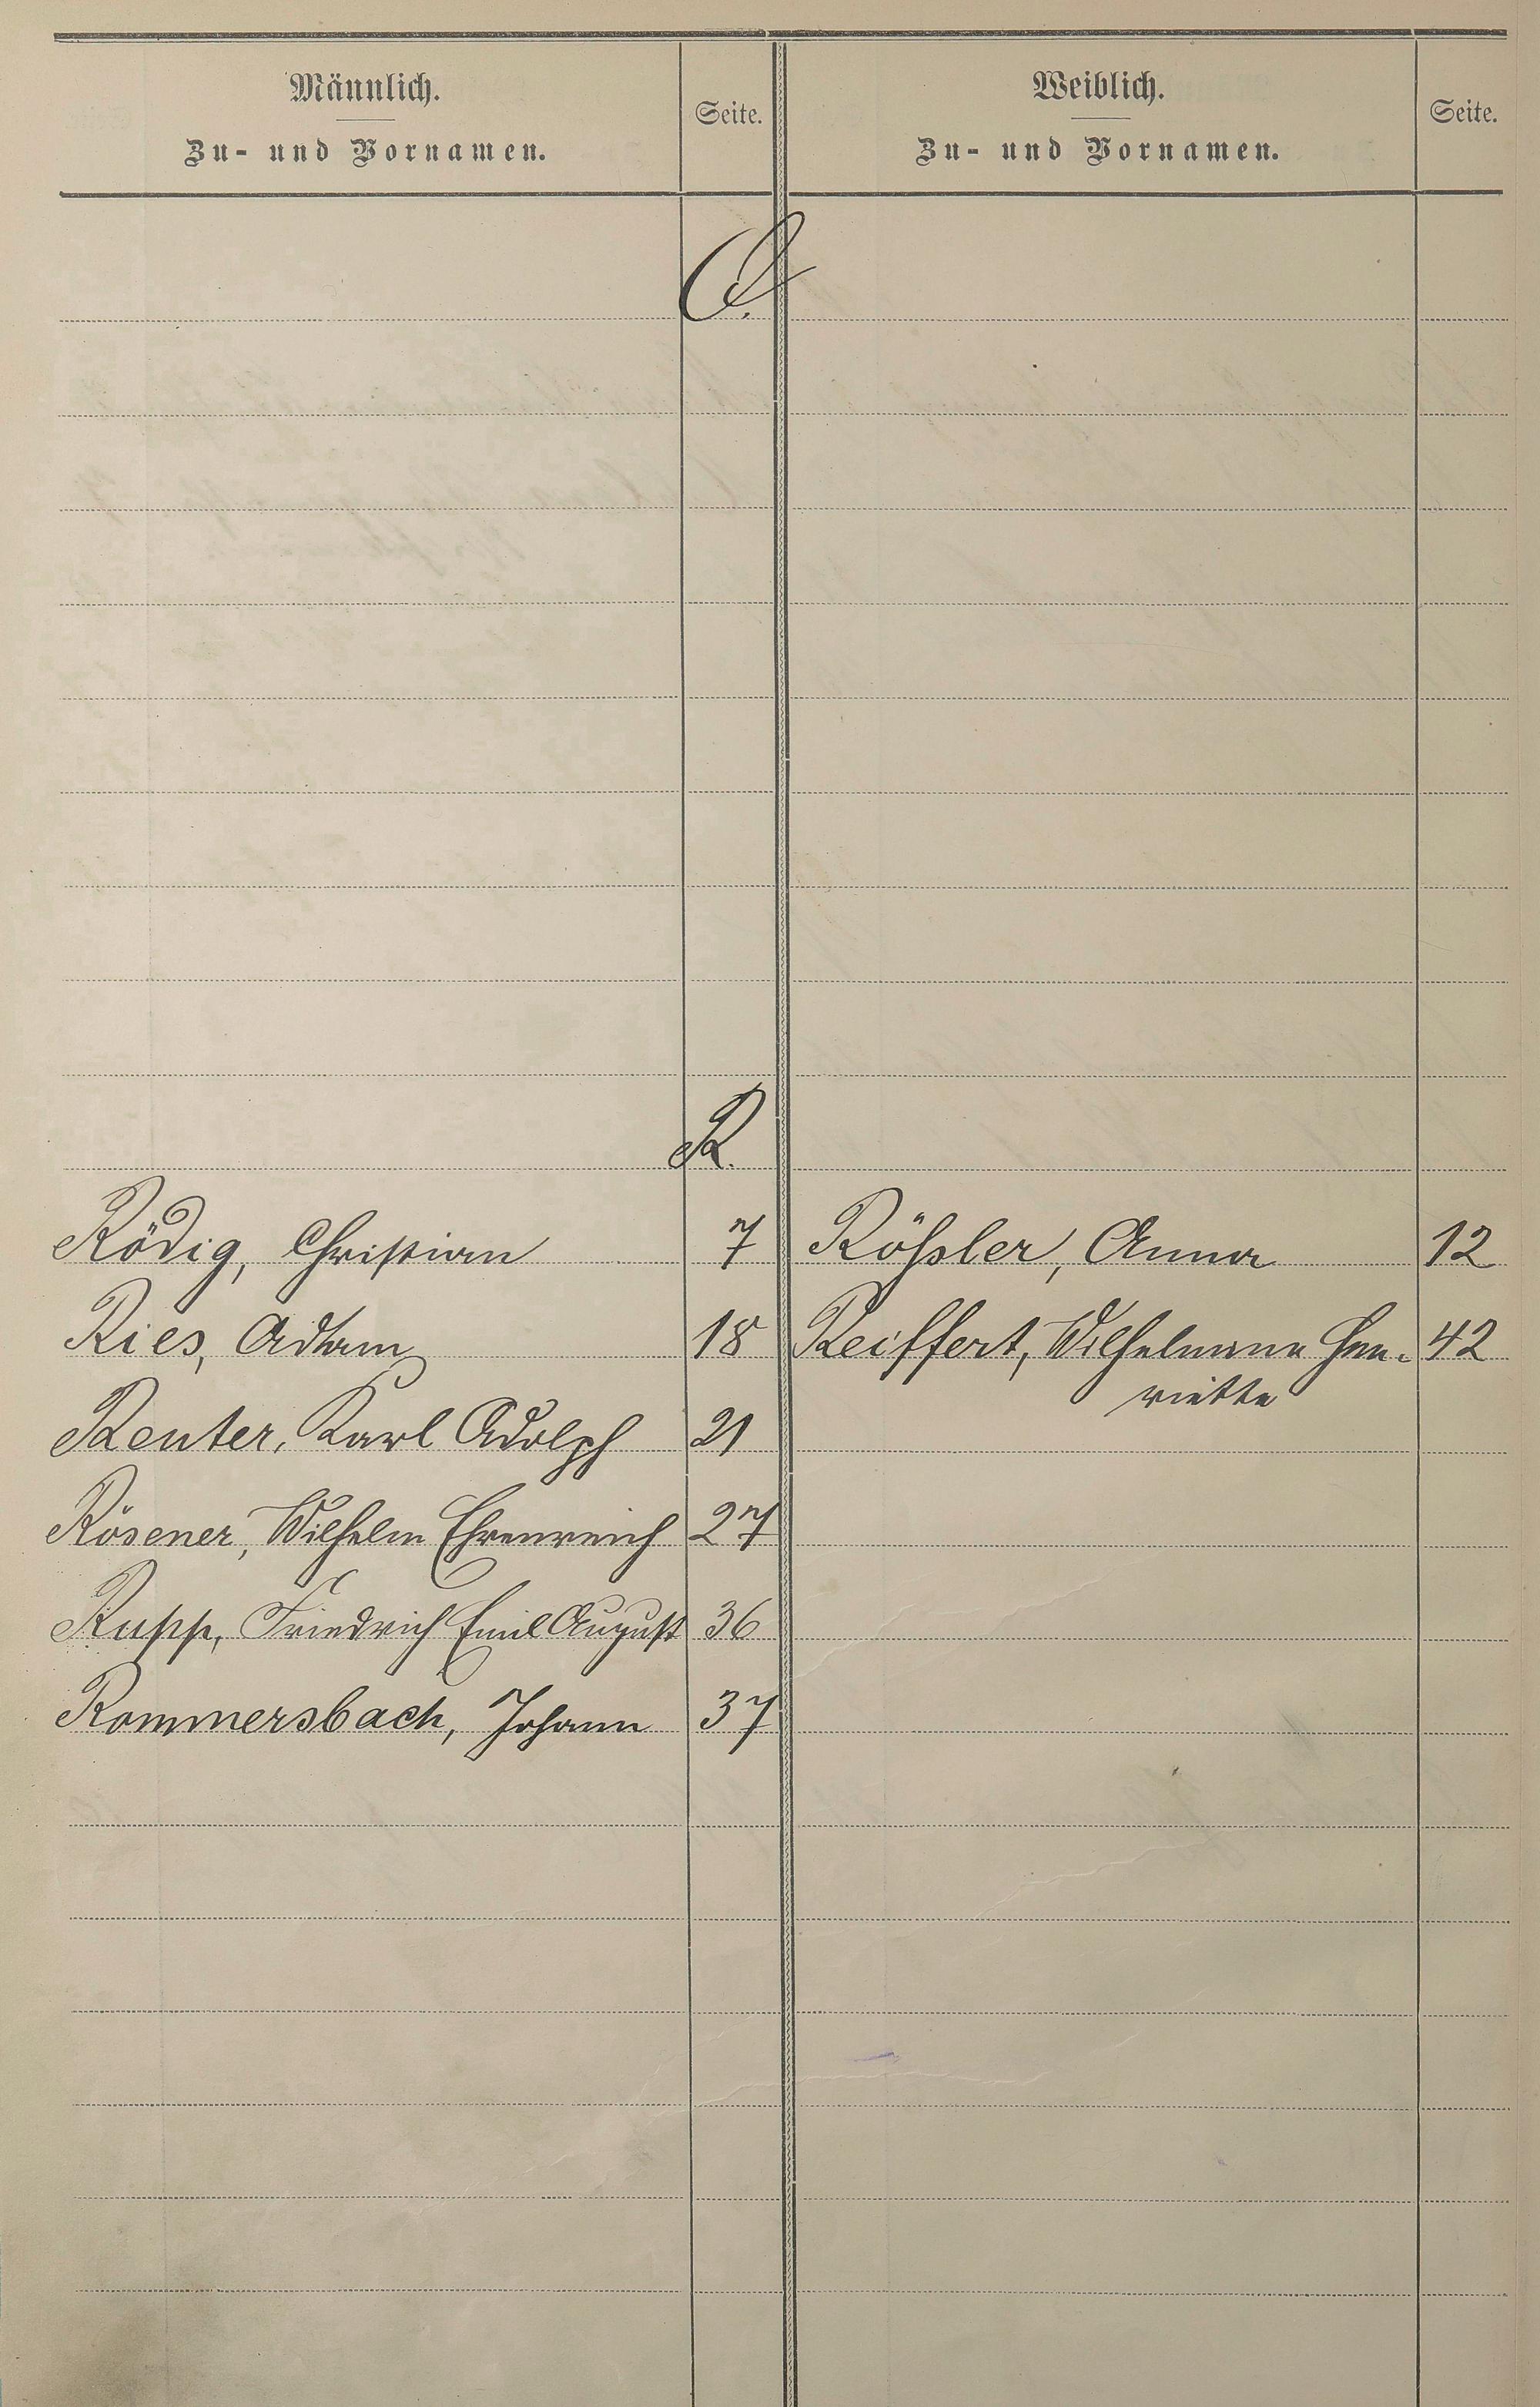 Männlich.
Zu- und Vornamen.
Seite.
Weiblich.
Zu- und Vornamen.
Seite.
Q.
R.
Rödig, Christian 7 Rößler, Anna 12
Ries, Adam 18 Reiffert, Wilhelmine Hen- 42
riette
Reuter, Karl Adolph 21
Rösener, Wilhelm Ehrenreich 27
Rupp, Friedrich Emil August 36
Rommersbach, Johann 37